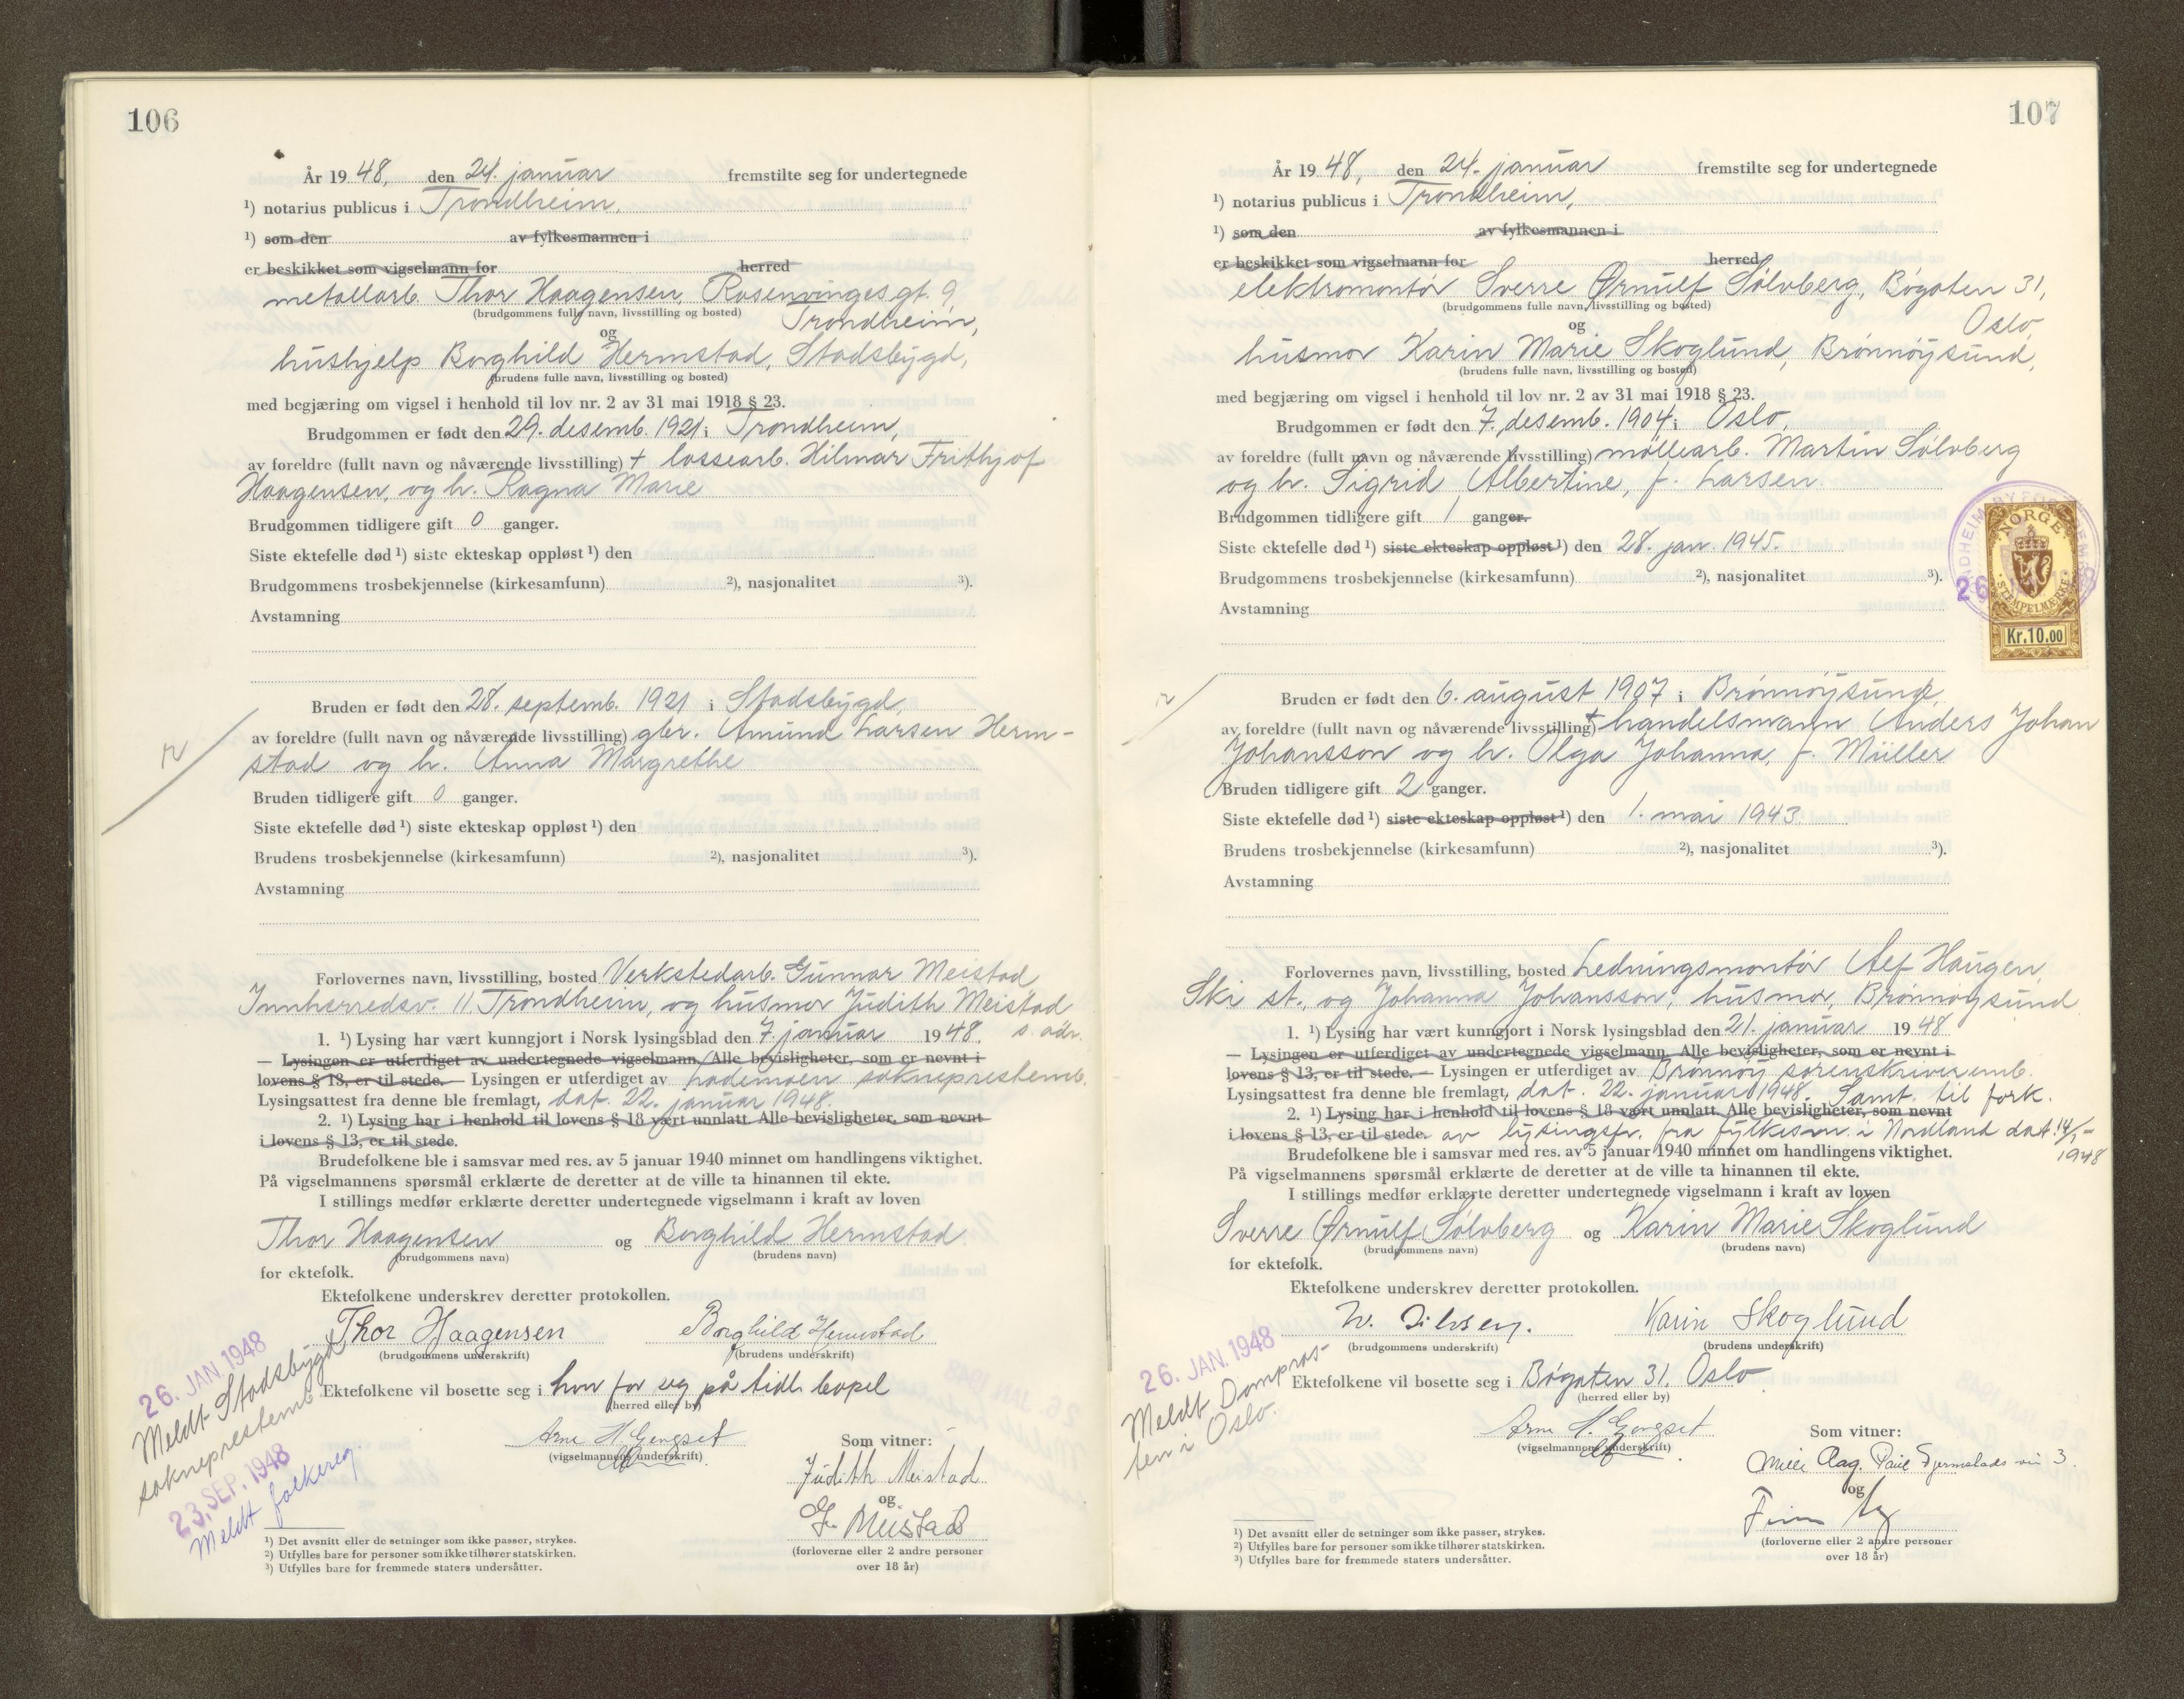 106
År 1948, den 24. januar fremstilte seg for undertegnede
¹) notarius publicus i Trondheim,
¹) som den av fylkesmannen i
er beskikket som vigselmann for herred
metallarb. Thor Haagensen, Rosenvinges gt. 9,
(brudgommens fulle navn, livsstilling og bosted) Trondheim,
og
hushjelp Borghild Hermstad, Stadsbygd,
(brudens fulle navn, livsstilling og bosted)
med begjæring om vigsel i henhold til lov nr. 2 av 31 mai 1918 § 23.
Brudgommen er født den 29. desemb. 1921 i Trondheim,
av foreldre (fullt navn og nåværende livsstilling) + lossearb. Hilmar Frithjof
Haagensen, og h. Ragna Marie
Brudgommen tidligere gift 0 ganger.
Siste ektefelle død ¹) siste ekteskap oppløst ¹) den
Brudgommens trosbekjennelse (kirkesamfunn) ²), nasjonalitet ³).
Avstamning
Bruden er født den 28. septemb. 1921 i Stadsbygd,
av foreldre (fullt navn og nåværende livsstilling) gbr. Amund Larsen Herm-
stad og h. Anna Margrethe
Bruden tidligere gift 0 ganger.
Siste ektefelle død ¹) siste ekteskap oppløst ¹) den
Brudens trosbekjennelse (kirkesamfunn) ²), nasjonalitet ³).
Avstamning
Forlovernes navn, livsstilling, bosted Verkstedarb. Gunnar Meistad
Innherredsv. 11 Trondheim, og husmor Judith Meistad
1. ¹) Lysing har vært kunngjort i Norsk lysingsblad den 7. januar 1948. s. adr.
— Lysingen er utferdiget av undertegnede vigselmann. Alle bevisligheter, som er nevnt i
lovens § 13, er til stede. — Lysingen er utferdiget av Lademoen sokneprestemb.
Lysingsattest fra denne ble fremlagt, dat. 22. januar 1948.
2. ¹) Lysing har i henhold til lovens § 18 vært unnlatt. Alle bevisligheter, som nevnt
i lovens § 13, er til stede.
Brudefolkene ble i samsvar med res. av 5 januar 1940 minnet om handlingens viktighet.
På vigselmannens spørsmål erklærte de deretter at de ville ta hinannen til ekte.
I stillings medfør erklærte deretter undertegnede vigselmann i kraft av loven
Thor Haagensen og Borghild Hermstad
(brudgommens navn) (brudens navn)
for ektefolk.
Ektefolkene underskrev deretter protokollen.
Thor Haagensen Borghild Hermstad
(brudgommens underskrift) (brudens underskrift)
Ektefolkene vil bosette seg i hver for seg på tidl. bopel
(herred eller by)
26. JAN. 1948
Meldt Stadsbygd
sokneprestemb.
23. SEP. 1948
Meldt folkereg.
Arne H. Gengset Som vitner:
(vigselmannens underskrift)
Judith Meistad
og
G. Meistad
(forloverne eller 2 andre personer
over 18 år)
¹) Det avsnitt eller de setninger som ikke passer, strykes.
²) Utfylles bare for personer som ikke tilhører statskirken.
³) Utfylles bare for fremmede staters undersåtter.
107
År 1948, den 24. januar fremstilte seg for undertegnede
¹) notarius publicus i Trondheim,
¹) som den av fylkesmannen i
er beskikket som vigselmann for herred
elektromontør Sverre Ørnulf Sølvberg, Bøgaten 31,
(brudgommens fulle navn, livsstilling og bosted) Oslo,
og
husmor Karin Marie Skoglund, Brønnøysund,
(brudens fulle navn, livsstilling og bosted)
med begjæring om vigsel i henhold til lov nr. 2 av 31 mai 1918 § 23.
Brudgommen er født den 7. desemb. 1904 i Oslo,
av foreldre (fullt navn og nåværende livsstilling) møllearb. Martin Sølvberg
og h. Sigrid Albertine, f. Larsen.
Brudgommen tidligere gift 1 ganger.
Siste ektefelle død ¹) siste ekteskap oppløst ¹) den 28. jan. 1945.
Brudgommens trosbekjennelse (kirkesamfunn) ²), nasjonalitet ³).
Avstamning
NORGE
STEMPELMERKE
Kr. 10.00
26
Bruden er født den 6. august 1907 i Brønnøysund,
av foreldre (fullt navn og nåværende livsstilling) + handelsmann Anders Johan
Johansson og h. Olga Johanna, f. Müller
Bruden tidligere gift 2 ganger.
Siste ektefelle død ¹) siste ekteskap oppløst ¹) den 1. mai 1943.
Brudens trosbekjennelse (kirkesamfunn) ²), nasjonalitet ³).
Avstamning
Forlovernes navn, livsstilling, bosted Ledningsmontør Alf Haugen,
Ski st., og Johanna Johansson, husmor, Brønnøysund
1. ¹) Lysing har vært kunngjort i Norsk lysingsblad den 21. januar 1948
— Lysingen er utferdiget av undertegnede vigselmann. Alle bevisligheter, som er nevnt i
lovens § 13, er til stede. — Lysingen er utferdiget av Brønnøy sorenskriveremb.
Lysingsattest fra denne ble fremlagt, dat. 22. januar 1948. Samt. til fork.
2. ¹) Lysing har i henhold til lovens § 18 vært unnlatt. Alle bevisligheter, som nevnt
i lovens § 13, er til stede. av lysingsfr. fra fylkesm. i Nordland dat. 14/1-
1948
Brudefolkene ble i samsvar med res. av 5 januar 1940 minnet om handlingens viktighet.
På vigselmannens spørsmål erklærte de deretter at de ville ta hinannen til ekte.
I stillings medfør erklærte deretter undertegnede vigselmann i kraft av loven
Sverre Ørnulf Sølvberg og Karin Marie Skoglund
(brudgommens navn) (brudens navn)
for ektefolk.
Ektefolkene underskrev deretter protokollen.
Karin Skoglund
(brudgommens underskrift) (brudens underskrift)
Ektefolkene vil bosette seg i Bøgaten 31. Oslo
(herred eller by)
26. JAN. 1948
Meldt Dompros-
ten i Oslo.
Arne H. Gengset Som vitner:
(vigselmannens underskrift)
3.
og
Finn
(forloverne eller 2 andre personer
over 18 år)
¹) Det avsnitt eller de setninger som ikke passer, strykes.
²) Utfylles bare for personer som ikke tilhører statskirken.
³) Utfylles bare for fremmede staters undersåtter.